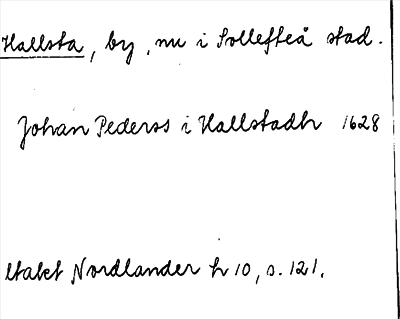 Hallsta, by, nu i Sollefteå stad.
Johan Pederss i Hallstadh 1628
Nordlander h 10, s. 121.